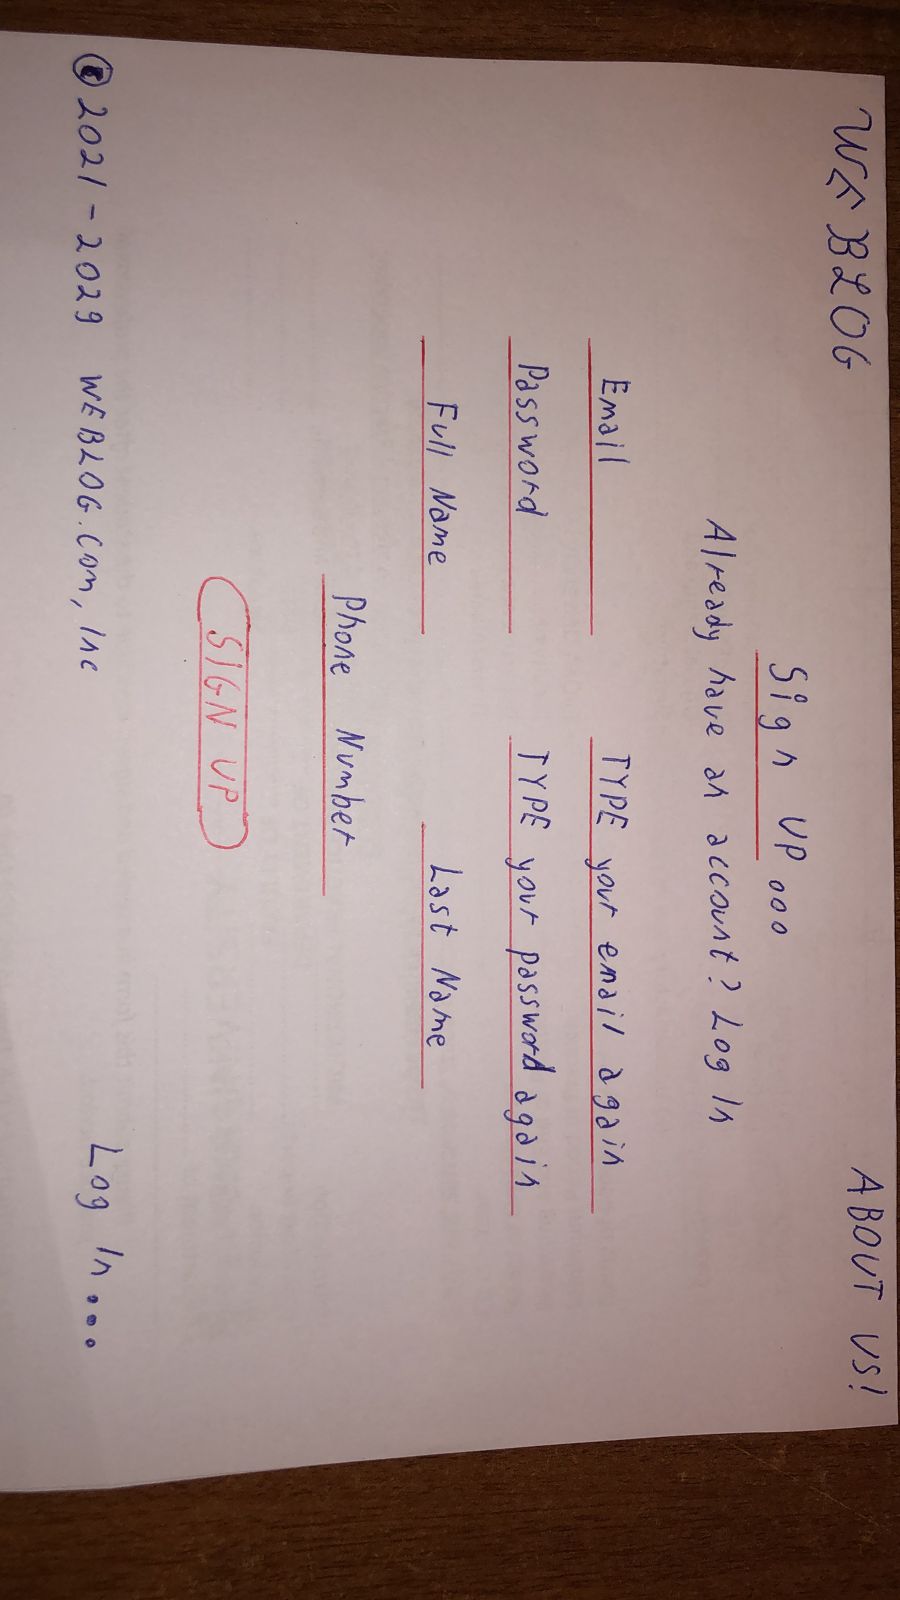 WEBLOG ABOUT US!
Sign UP...
Already have an account? Log In
Email TYPE your email again
Password TYPE your password again
Full Name Last Name
Phone Number
SIGN UP
© 2021-2029 WEBLOG.Com, Inc Log In...